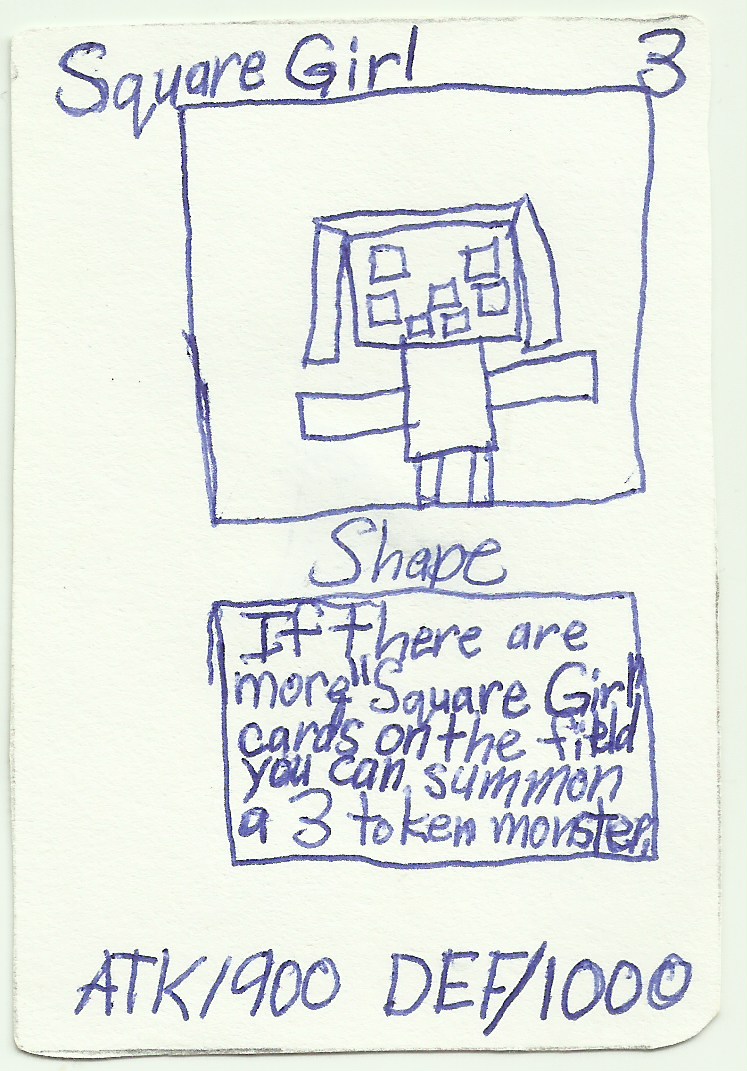 Square Girl 3
Shape
If there are
more "Square Girl"
cards on the field
you can summon
a 3 token monster.
ATK/900 DEF/1000